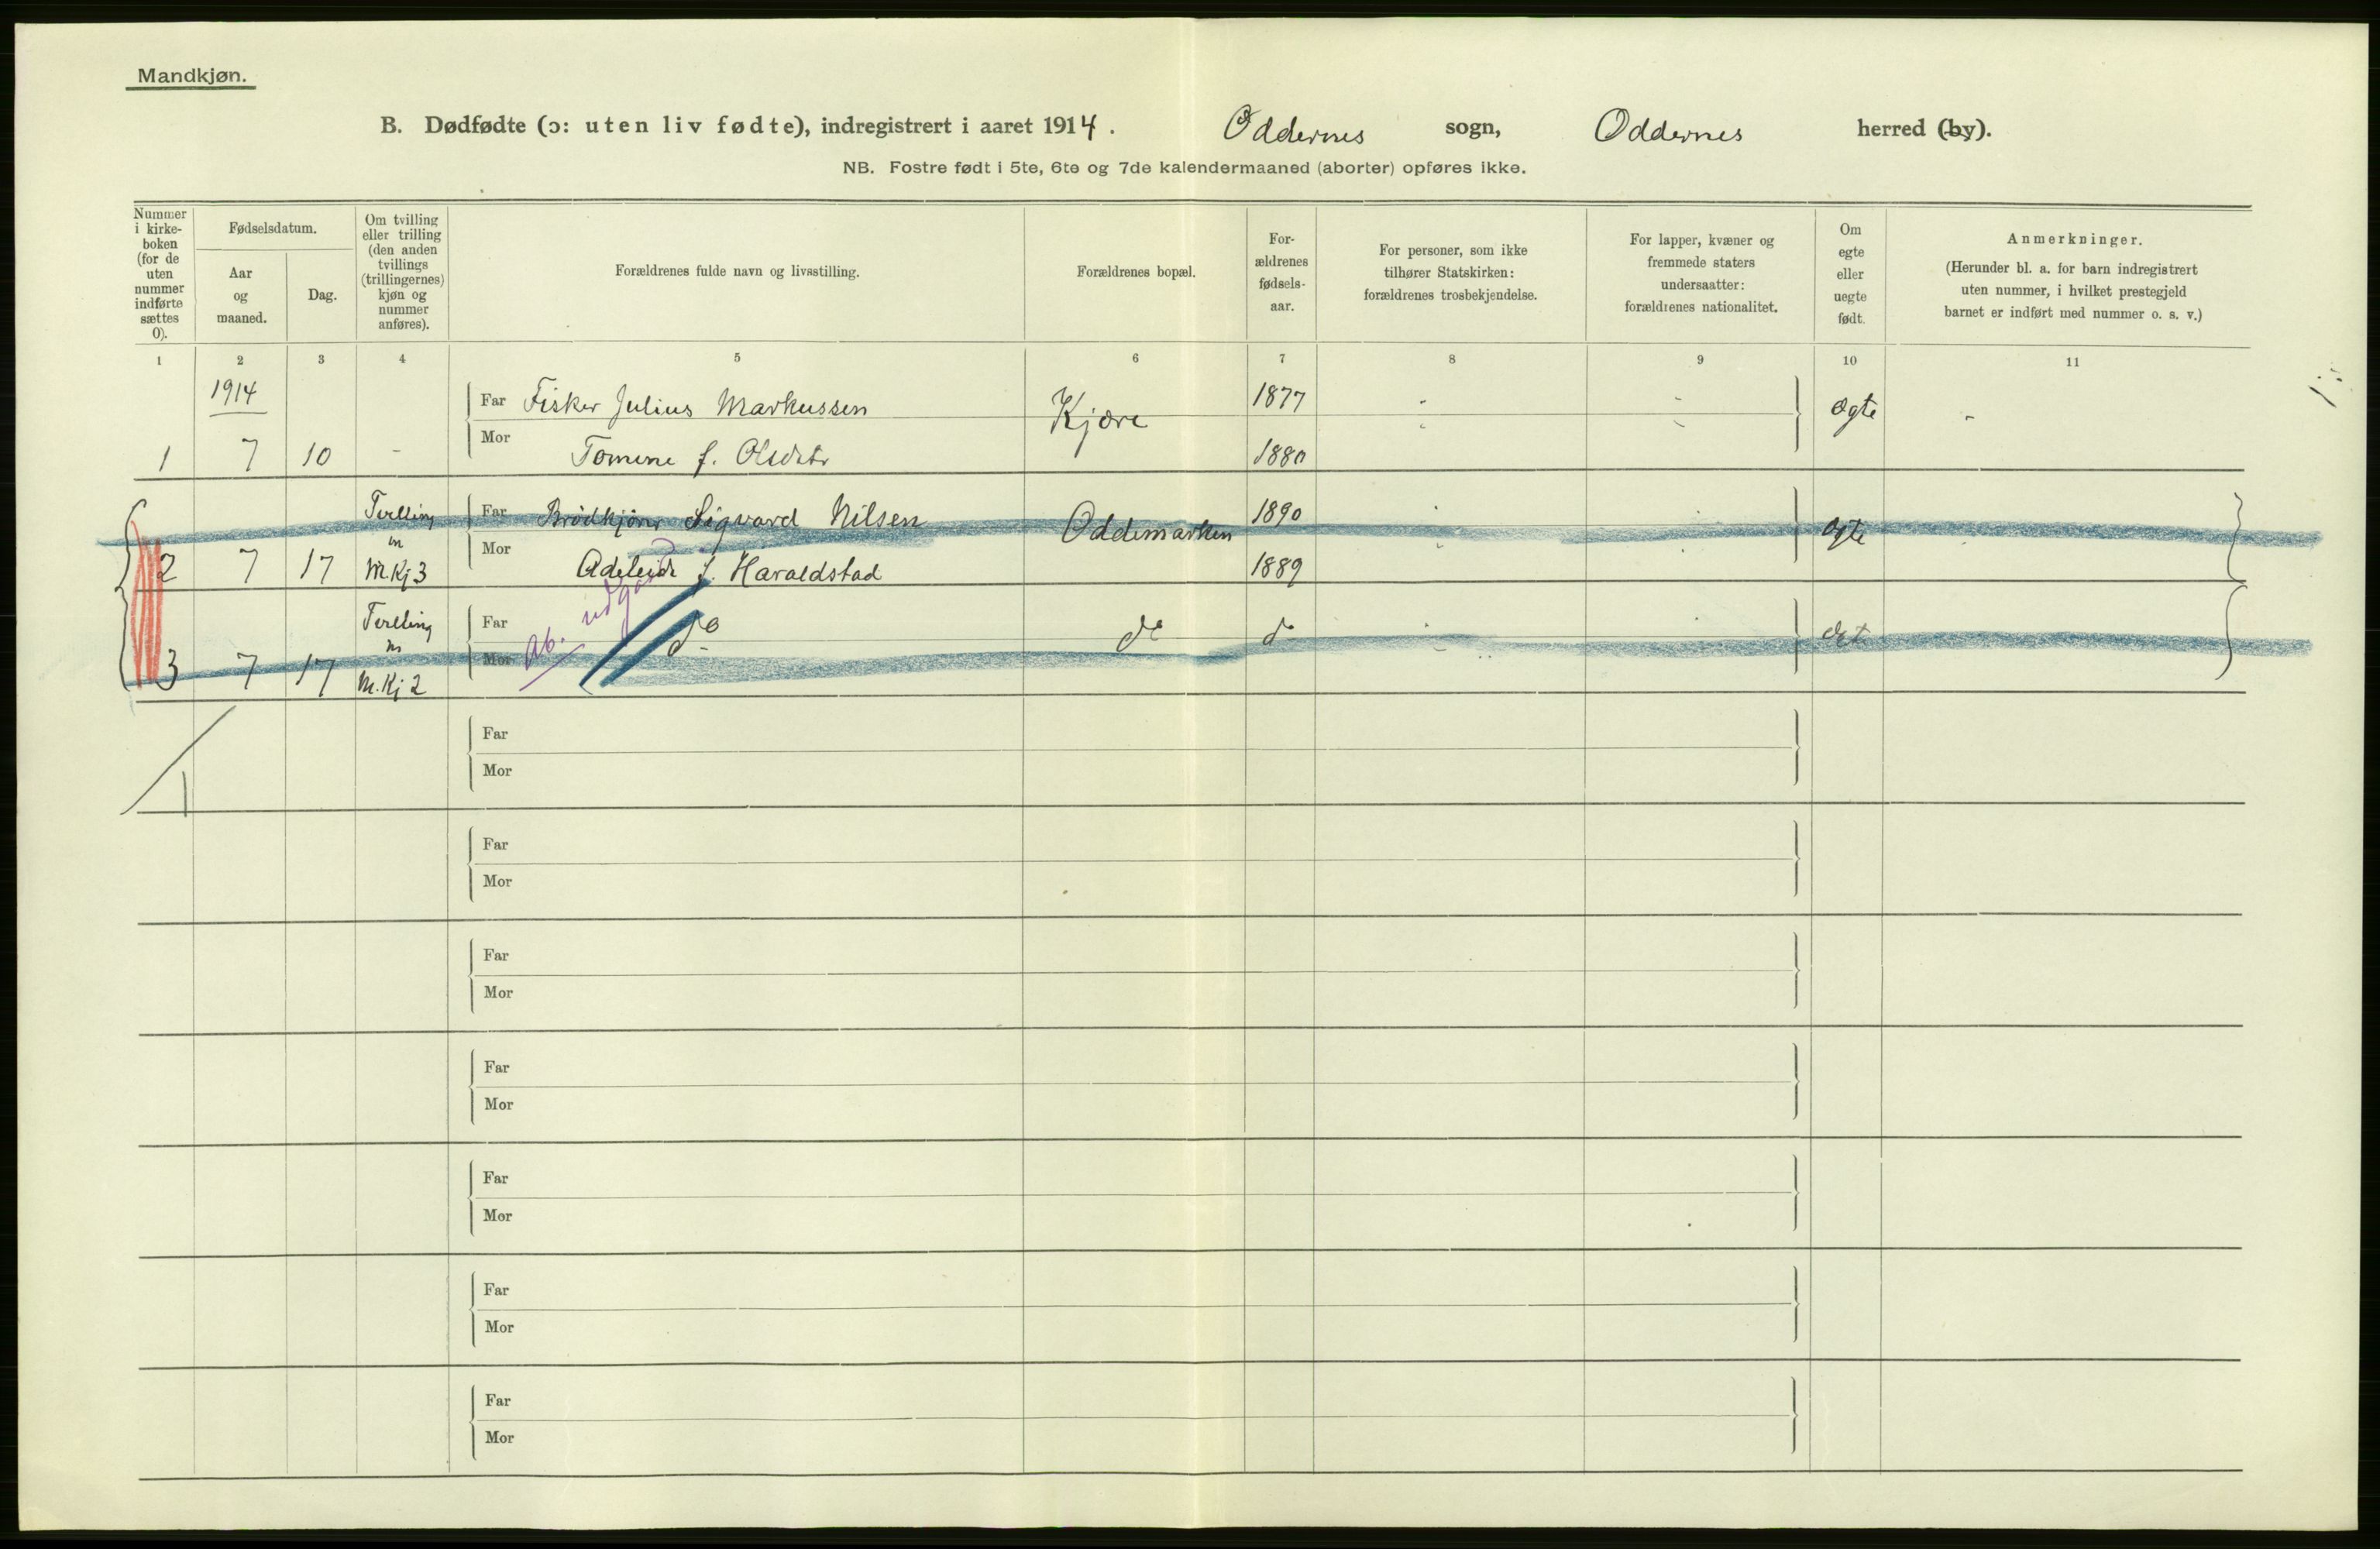 Mandkjøn.
B. Dødfødte (ɔ: uten liv fødte), indregistrert i aaret 1914. Oddernes sogn, Oddernes herred (by).
NB. Fostre født i 5te, 6te og 7de kalendermaaned (aborter) opføres ikke.
Nummer i kirke-boken (for de uten nummer indførte sættes 0).
Fødselsdatum.
Aar og maaned.
Dag.
Om tvilling eller trilling (den anden tvillings (trillingernes) kjøn og nummer anføres).
Forældrenes fulde navn og livsstilling.
Forældrenes bopæl.
For-ældrenes fødsels-aar.
For personer, som ikke tilhører Statskirken: forældrenes trosbekjendelse.
For lapper, kvæner og fremmede staters undersaatter: forældrenes nationalitet.
Om egte eller uegte født.
Anmerkninger.
(Herunder bl. a. for barn indregistrert uten nummer, i hvilket prestegjeld barnet er indført med nummer o. s. v.)
1 2 3 4 5 6 7 8 9 10 11
1914 Far Fisker Julius Markussen Kjøre 1877 - - Ægte -
1 7 10 - Mor Tomine f. Olsdtr 1880
Tvilling Far Brødkjører Sigvard Nilsen Oddemarken 1890 Ægte
m
2 7 17 M.Kj 3 Mor Adeleide f. Haraldstad 1889
Tvilling Far do do do Ægt
m
3 7 17 M.Kj 2 Mor
Ab. udgaar
1
Far
Mor
Far
Mor
Far
Mor
Far
Mor
Far
Mor
Far
Mor
Far
Mor